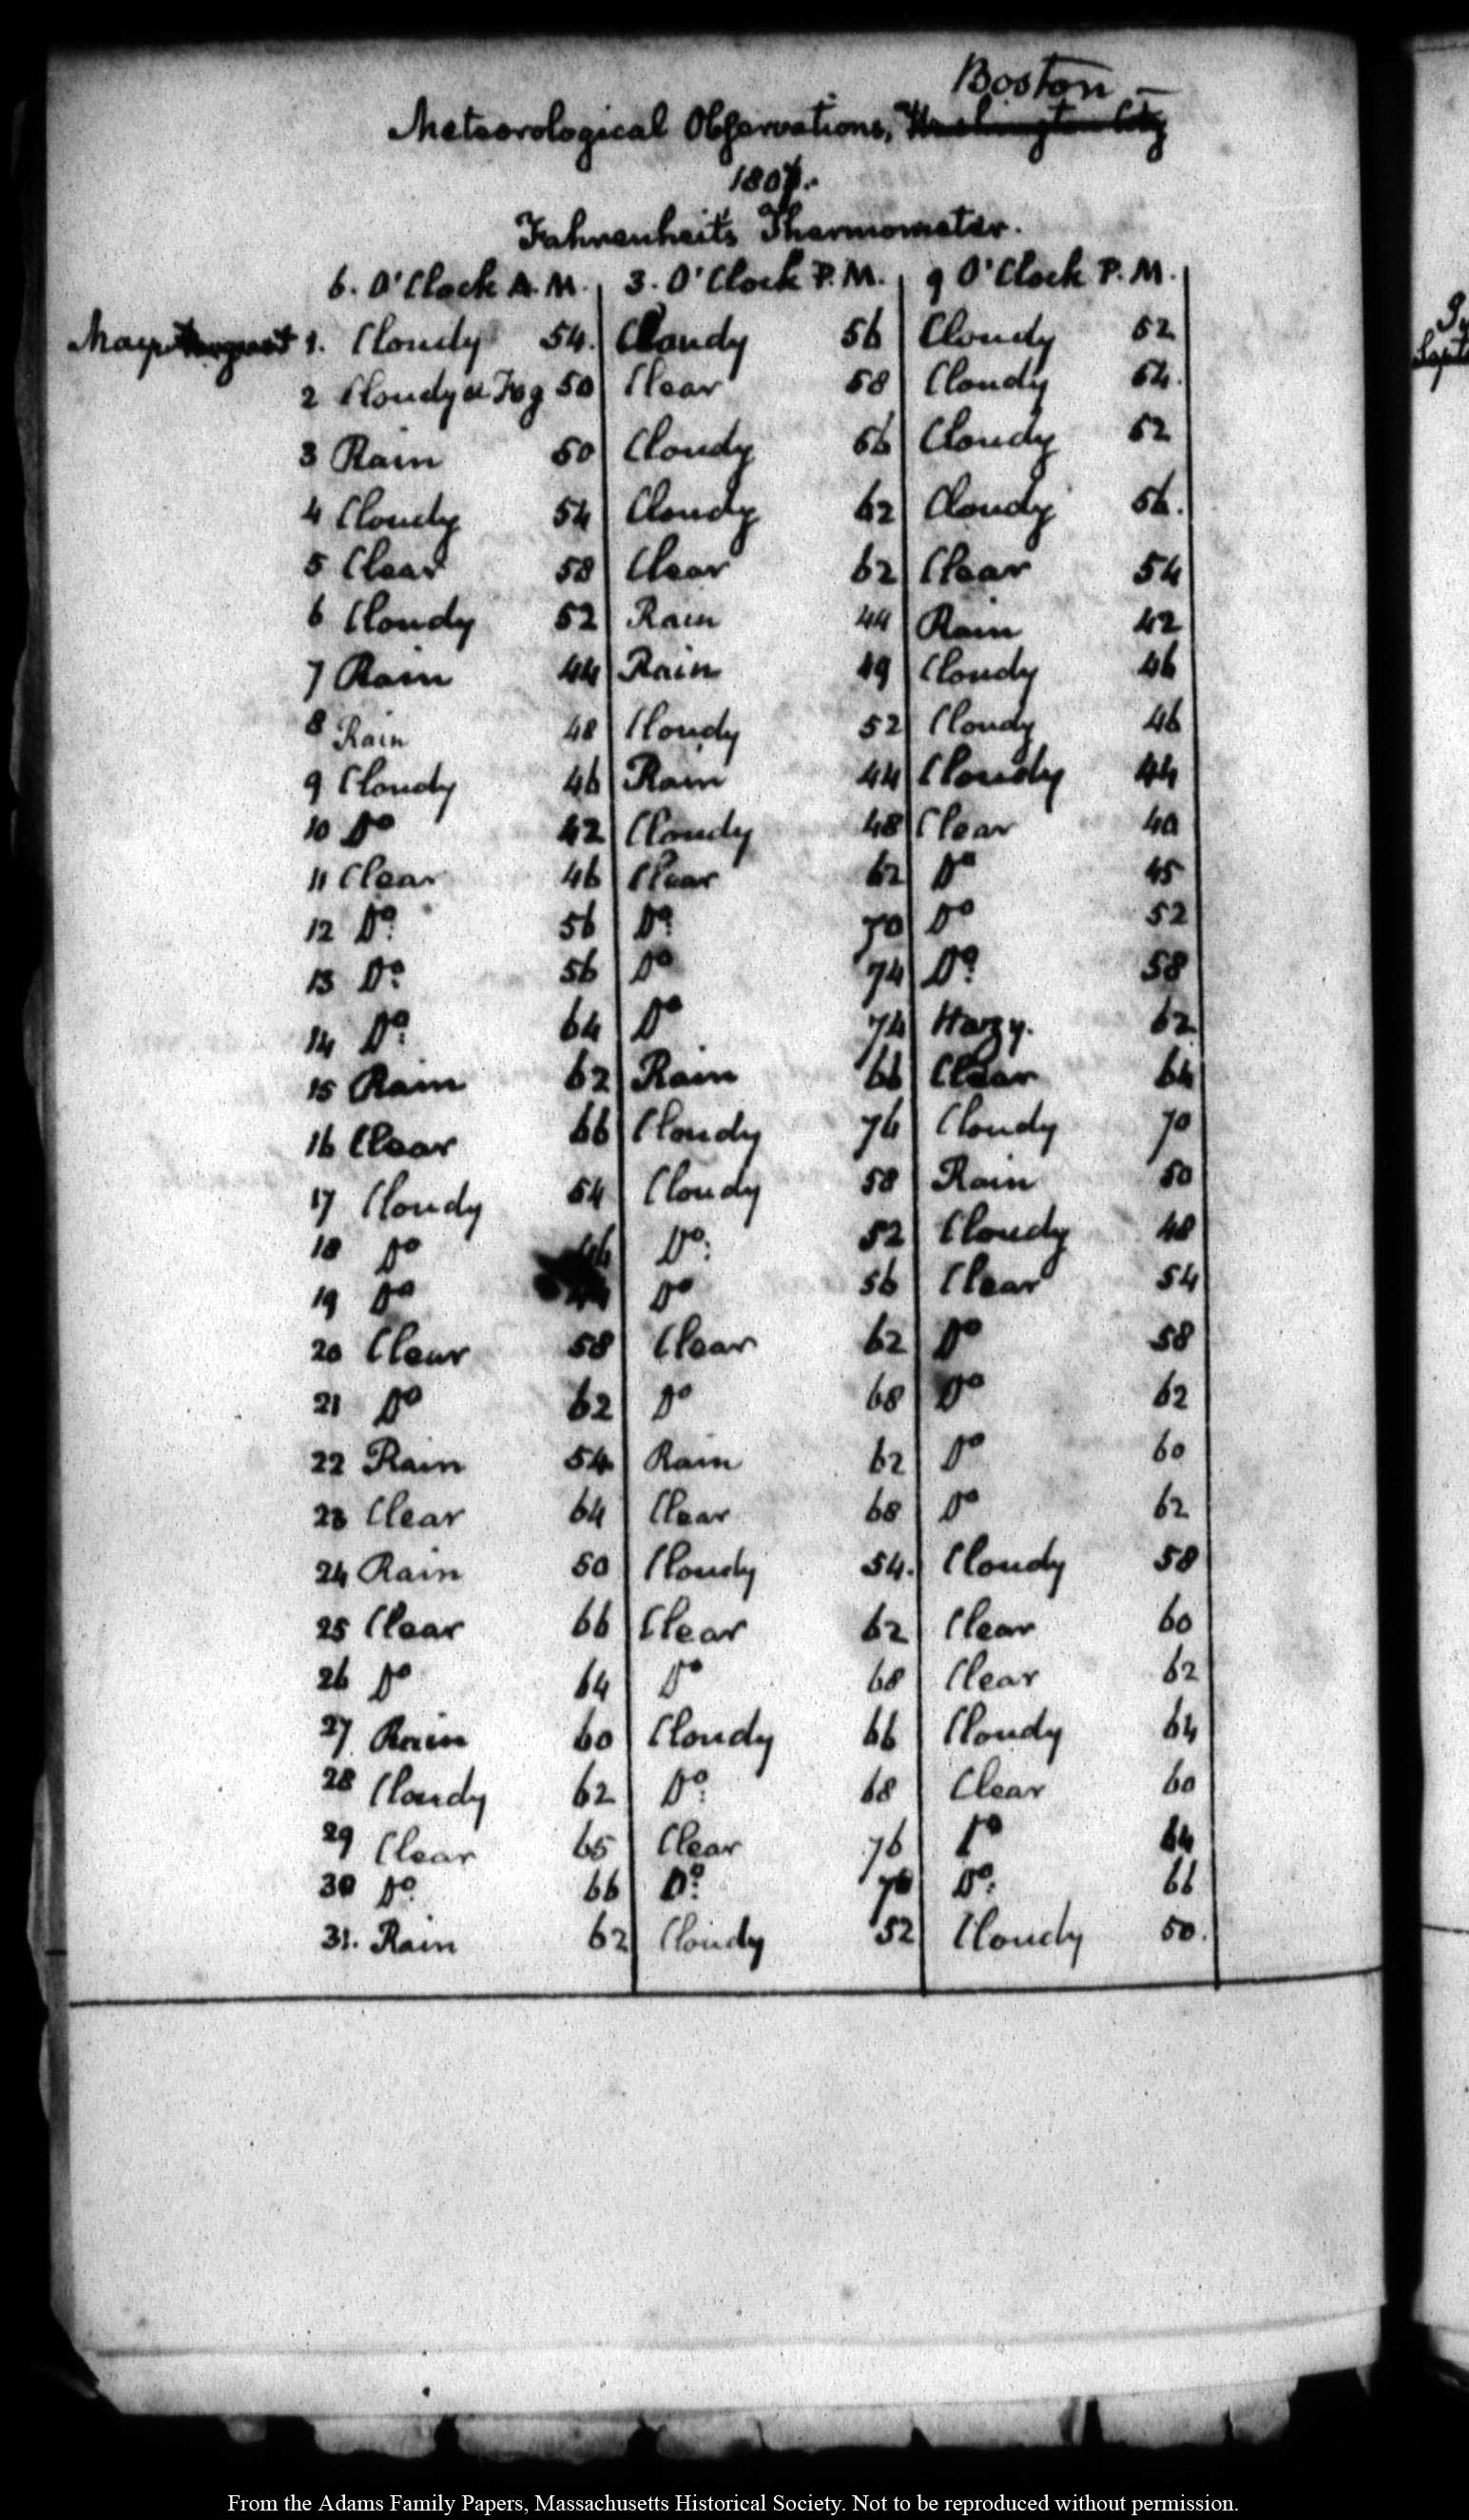 Boston –
Meteorological Observations, Washington City
1807.
Fahrenheit's Thermometer.
6. O'Clock A.M. 3. O'Clock P.M. 9 O'Clock P.M.
May August 1. Cloudy 54. Cloudy 56 Cloudy 52
2 Cloudy & Fog 50 Clear 58 Cloudy 54.
3 Rain 50 Cloudy 56 Cloudy 52
4 Cloudy 54 Cloudy 62 Cloudy 56.
5 Clear 58 Clear 62 Clear 54
6 Cloudy 52 Rain 44 Rain 42
7 Rain 44 Rain 49 Cloudy 46
8 Rain 48 Cloudy 52 Cloudy 46
9 Cloudy 46 Rain 44 Cloudy 44
10 Do 42 Cloudy 48 Clear 40
11 Clear 46 Clear 62 Do 45
12 Do. 56 Do. 70 Do 52
13 Do. 56 Do 74 Do. 58
14 Do. 64 Do 74 Hazy. 62
15 Rain 62 Rain 66 Clear 64
16 Clear 66 Cloudy 76 Cloudy 70
17 Cloudy 54 Cloudy 58 Rain 50
18 Do 46 Do. 52 Cloudy 48
19 Do Do 56 Clear 54
20 Clear 58 Clear 62 Do 58
21 Do 62 Do 68 Do 62
22 Rain 54 Rain 62 Do 60
23 Clear 64 Clear 68 Do 62
24 Rain 50 Cloudy 54. Cloudy 58
25 Clear 66 Clear 62 Clear 60
26 Do 64 Do 68 Clear 62
27 Rain 60 Cloudy 66 Cloudy 64
28 Cloudy 62 Do. 68 Clear 60
29 Clear 65 Clear 76 Do 64
30 Do. 66 Do. Do. 66
31. Rain 62 Cloudy 52 Cloudy 50.
From the Adams Family Papers, Massachusetts Historical Society. Not to be reproduced without permission.